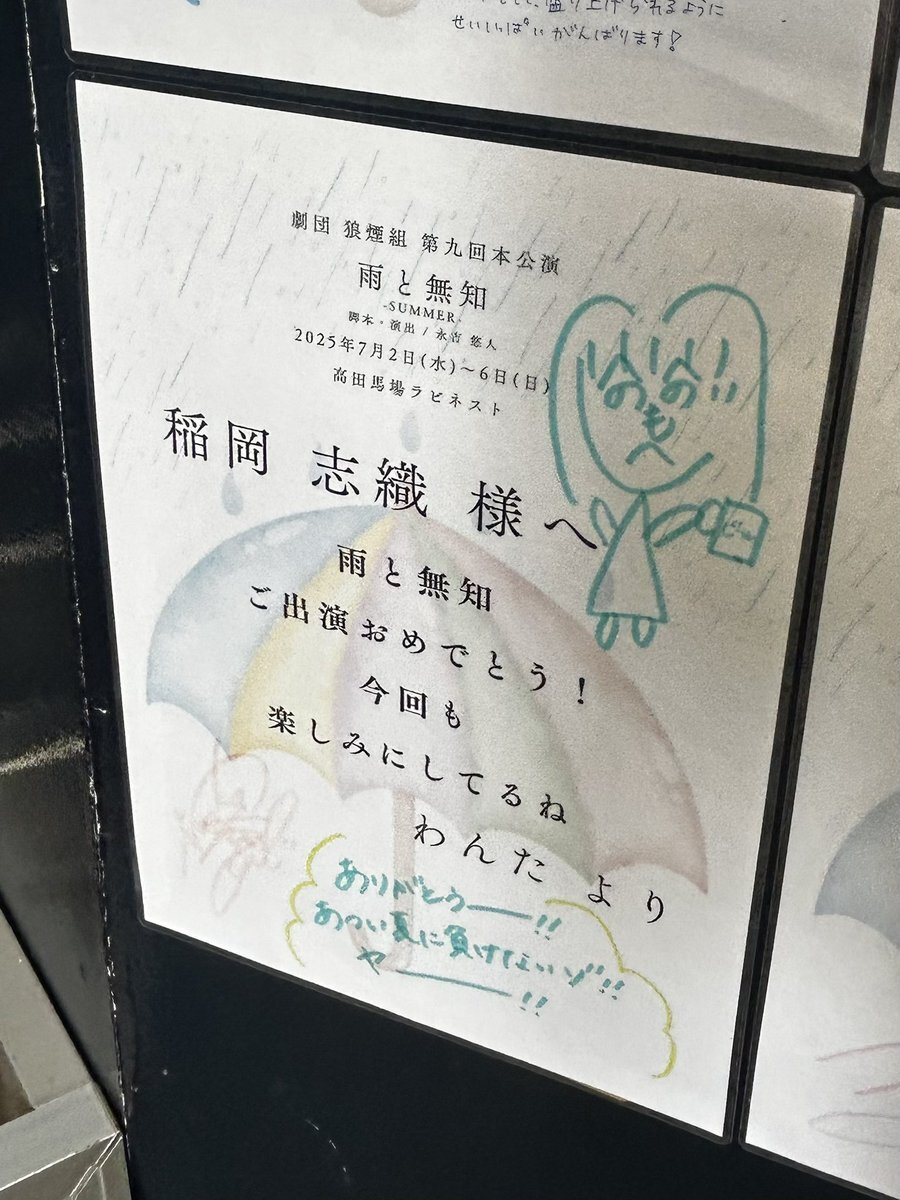 盛り上げられるように
せいいっぱいがんばります!
劇団 狼煙組 第九回本公演
雨と無知
-SUMMER-
脚本・演出 / 永吉 悠人
2025年7月2日(水)~6日(日)
高田馬場ラビネスト
稲岡 志織 様へ
雨と無知
ご出演おめでとう!
今回も
楽しみにしてるね
わんた より
ありがとうー!!
あつい夏に負けないゾ!!
ヤー!!